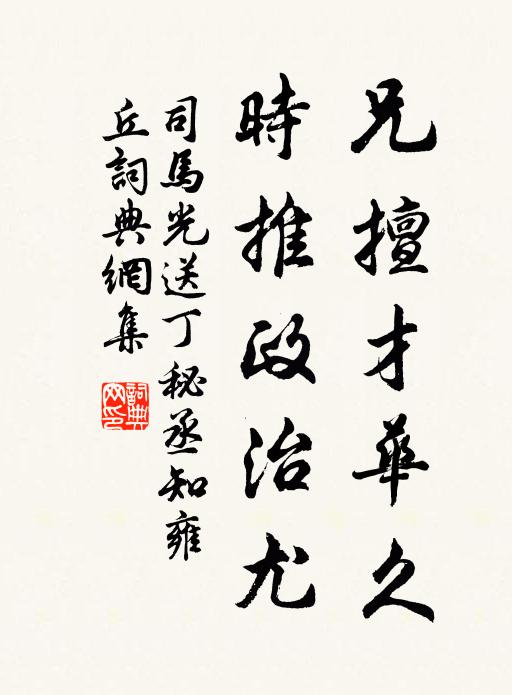 兄擅才華久
時推政治尤
司馬光送丁秘丞知雍
丘詞典網集
詞典
网印